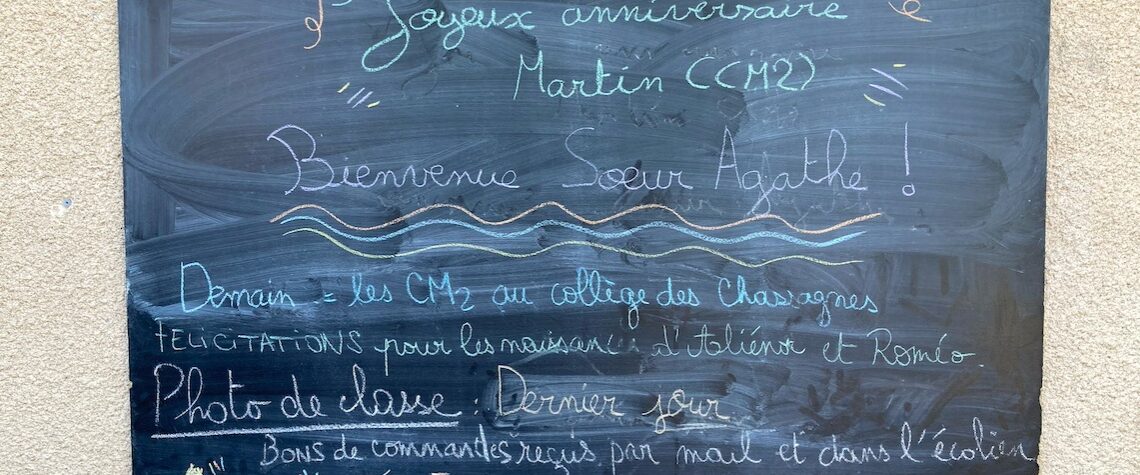 Joyeux anniversaire
Martin (CM2)
Bienvenue Soeur Agathe !
Demain = les CM2 au collège des Chassagnes
FELICITATIONS pour les naissances d'Aliénor et Roméo
Photo de classe : Dernier jour
Bons de commandes reçus par mail et dans l'écolien